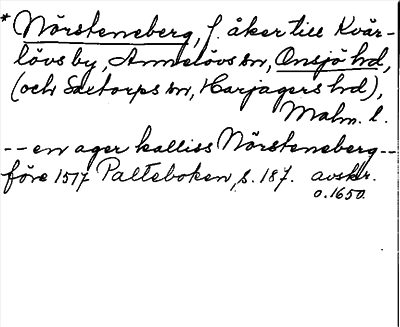 * Nörsteneberg, f. åker till Kvär-
lövs by, Annelövs sn, Onsjö hd,
(och Saxtorps sn, Harjagers hd),
Malm. l.
-- en ager kalliss Nörsteneberg --
före 1517 Palteboken, s. 187. avskr.
o. 1650.